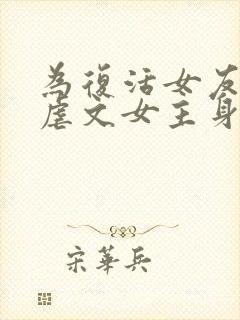 為復活女友
虐文女主身
宋華兵